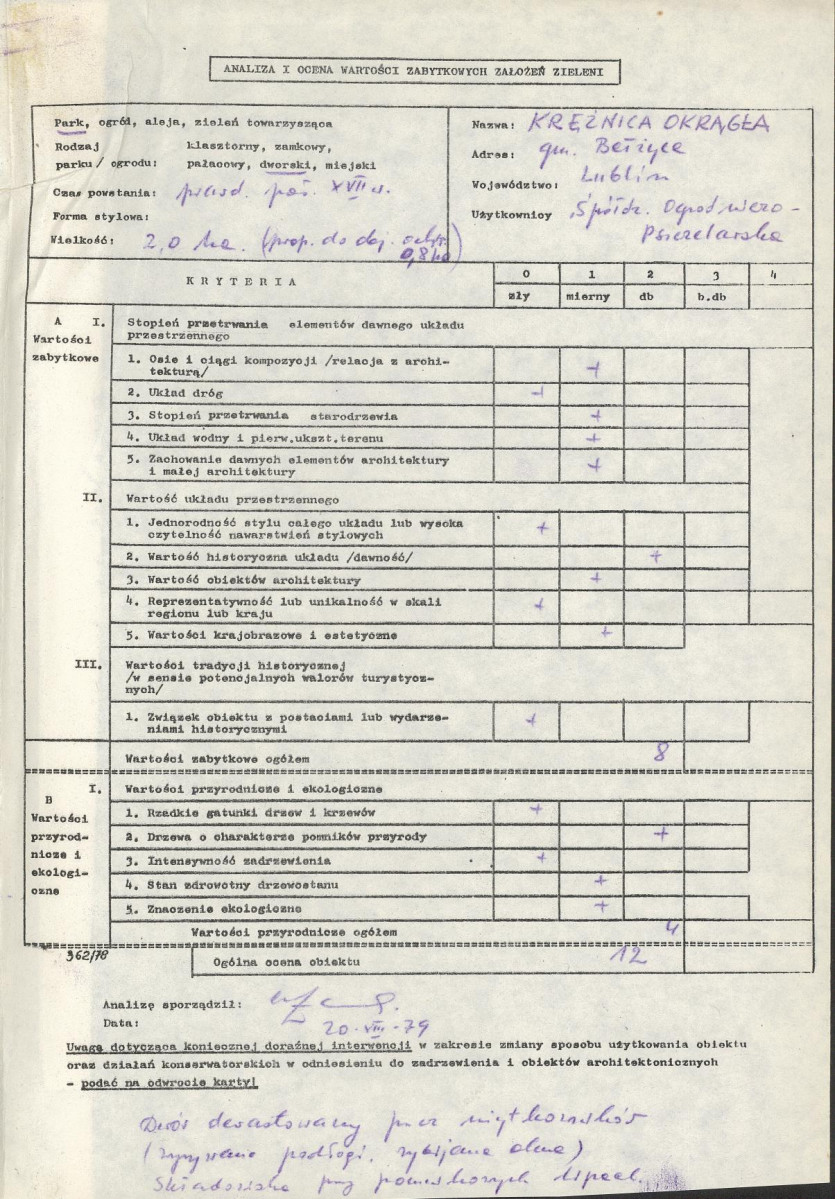 ANALIZA I OCENA WARTOŚCI ZABYTKOWYCH ZAŁOŻEŃ ZIELENI
Park, ogród, aleja, zieleń towarzysząca
Rodzaj klasztorny, zamkowy,
parku/ ogrodu: pałacowy, dworski, miejski
Czas powstania: przed. poł. XVII w.
Forma stylowa:
Wielkość: 2,0 ha. (prop. do obj. ochr. 0,8 ha)
Nazwa: KRĘŻNICA OKRĄGŁA
Adres: gm. Bełżyce
Województwo: Lublin
Użytkownicy Spółdz. Ogrodniczo-
Pszczelarska
KRYTERIA 0 1 2 3 4
zły mierny db b.db
A I. Stopień przetrwania elementów dawnego układu
przestrzennego
Wartości
zabytkowe
1. Osie i ciągi kompozycji /relacja z archi-
tekturą/ +
2. Układ dróg +
3. Stopień przetrwania starodrzewia +
4. Układ wodny i pierw.ukszt.terenu +
5. Zachowanie dawnych elementów architektury
i małej architektury +
II. Wartość układu przestrzennego
1. Jednorodność stylu całego układu lub wysoka
czytelność nawarstwień stylowych +
2. Wartość historyczna układu /dawność/ +
3. Wartość obiektów architektury +
4. Reprezentatywność lub unikalność w skali
regionu lub kraju +
5. Wartości krajobrazowe i estetyczne +
III. Wartości tradycji historycznej
/w sensie potencjalnych walorów turystycz-
nych/
1. Związek obiektu z postaciami lub wydarze-
niami historycznymi +
Wartości zabytkowe ogółem 8
B I. Wartości przyrodnicze i ekologiczne
Wartości
przyrod-
nicze i
ekologi-
czne
1. Rzadkie gatunki drzew i krzewów +
2. Drzewa o charakterze pomników przyrody +
3. Intensywność zadrzewienia +
4. Stan zdrowotny drzewostanu +
5. Znaczenie ekologiczne +
Wartości przyrodnicze ogółem 4
362/78
Ogólna ocena obiektu 12
Analizę sporządził:
Data: 20-VIII-79
Uwagę dotycząca koniecznej doraźnej interwencji w zakresie zmiany sposobu użytkowania obiektu
oraz działań konserwatorskich w odniesieniu do zadrzewienia i obiektów architektonicznych
- podać na odwrocie karty!
Dwór dewastowany przez użytkowników
(zrywane podłogi, wybijane okna)
Składowiska przy